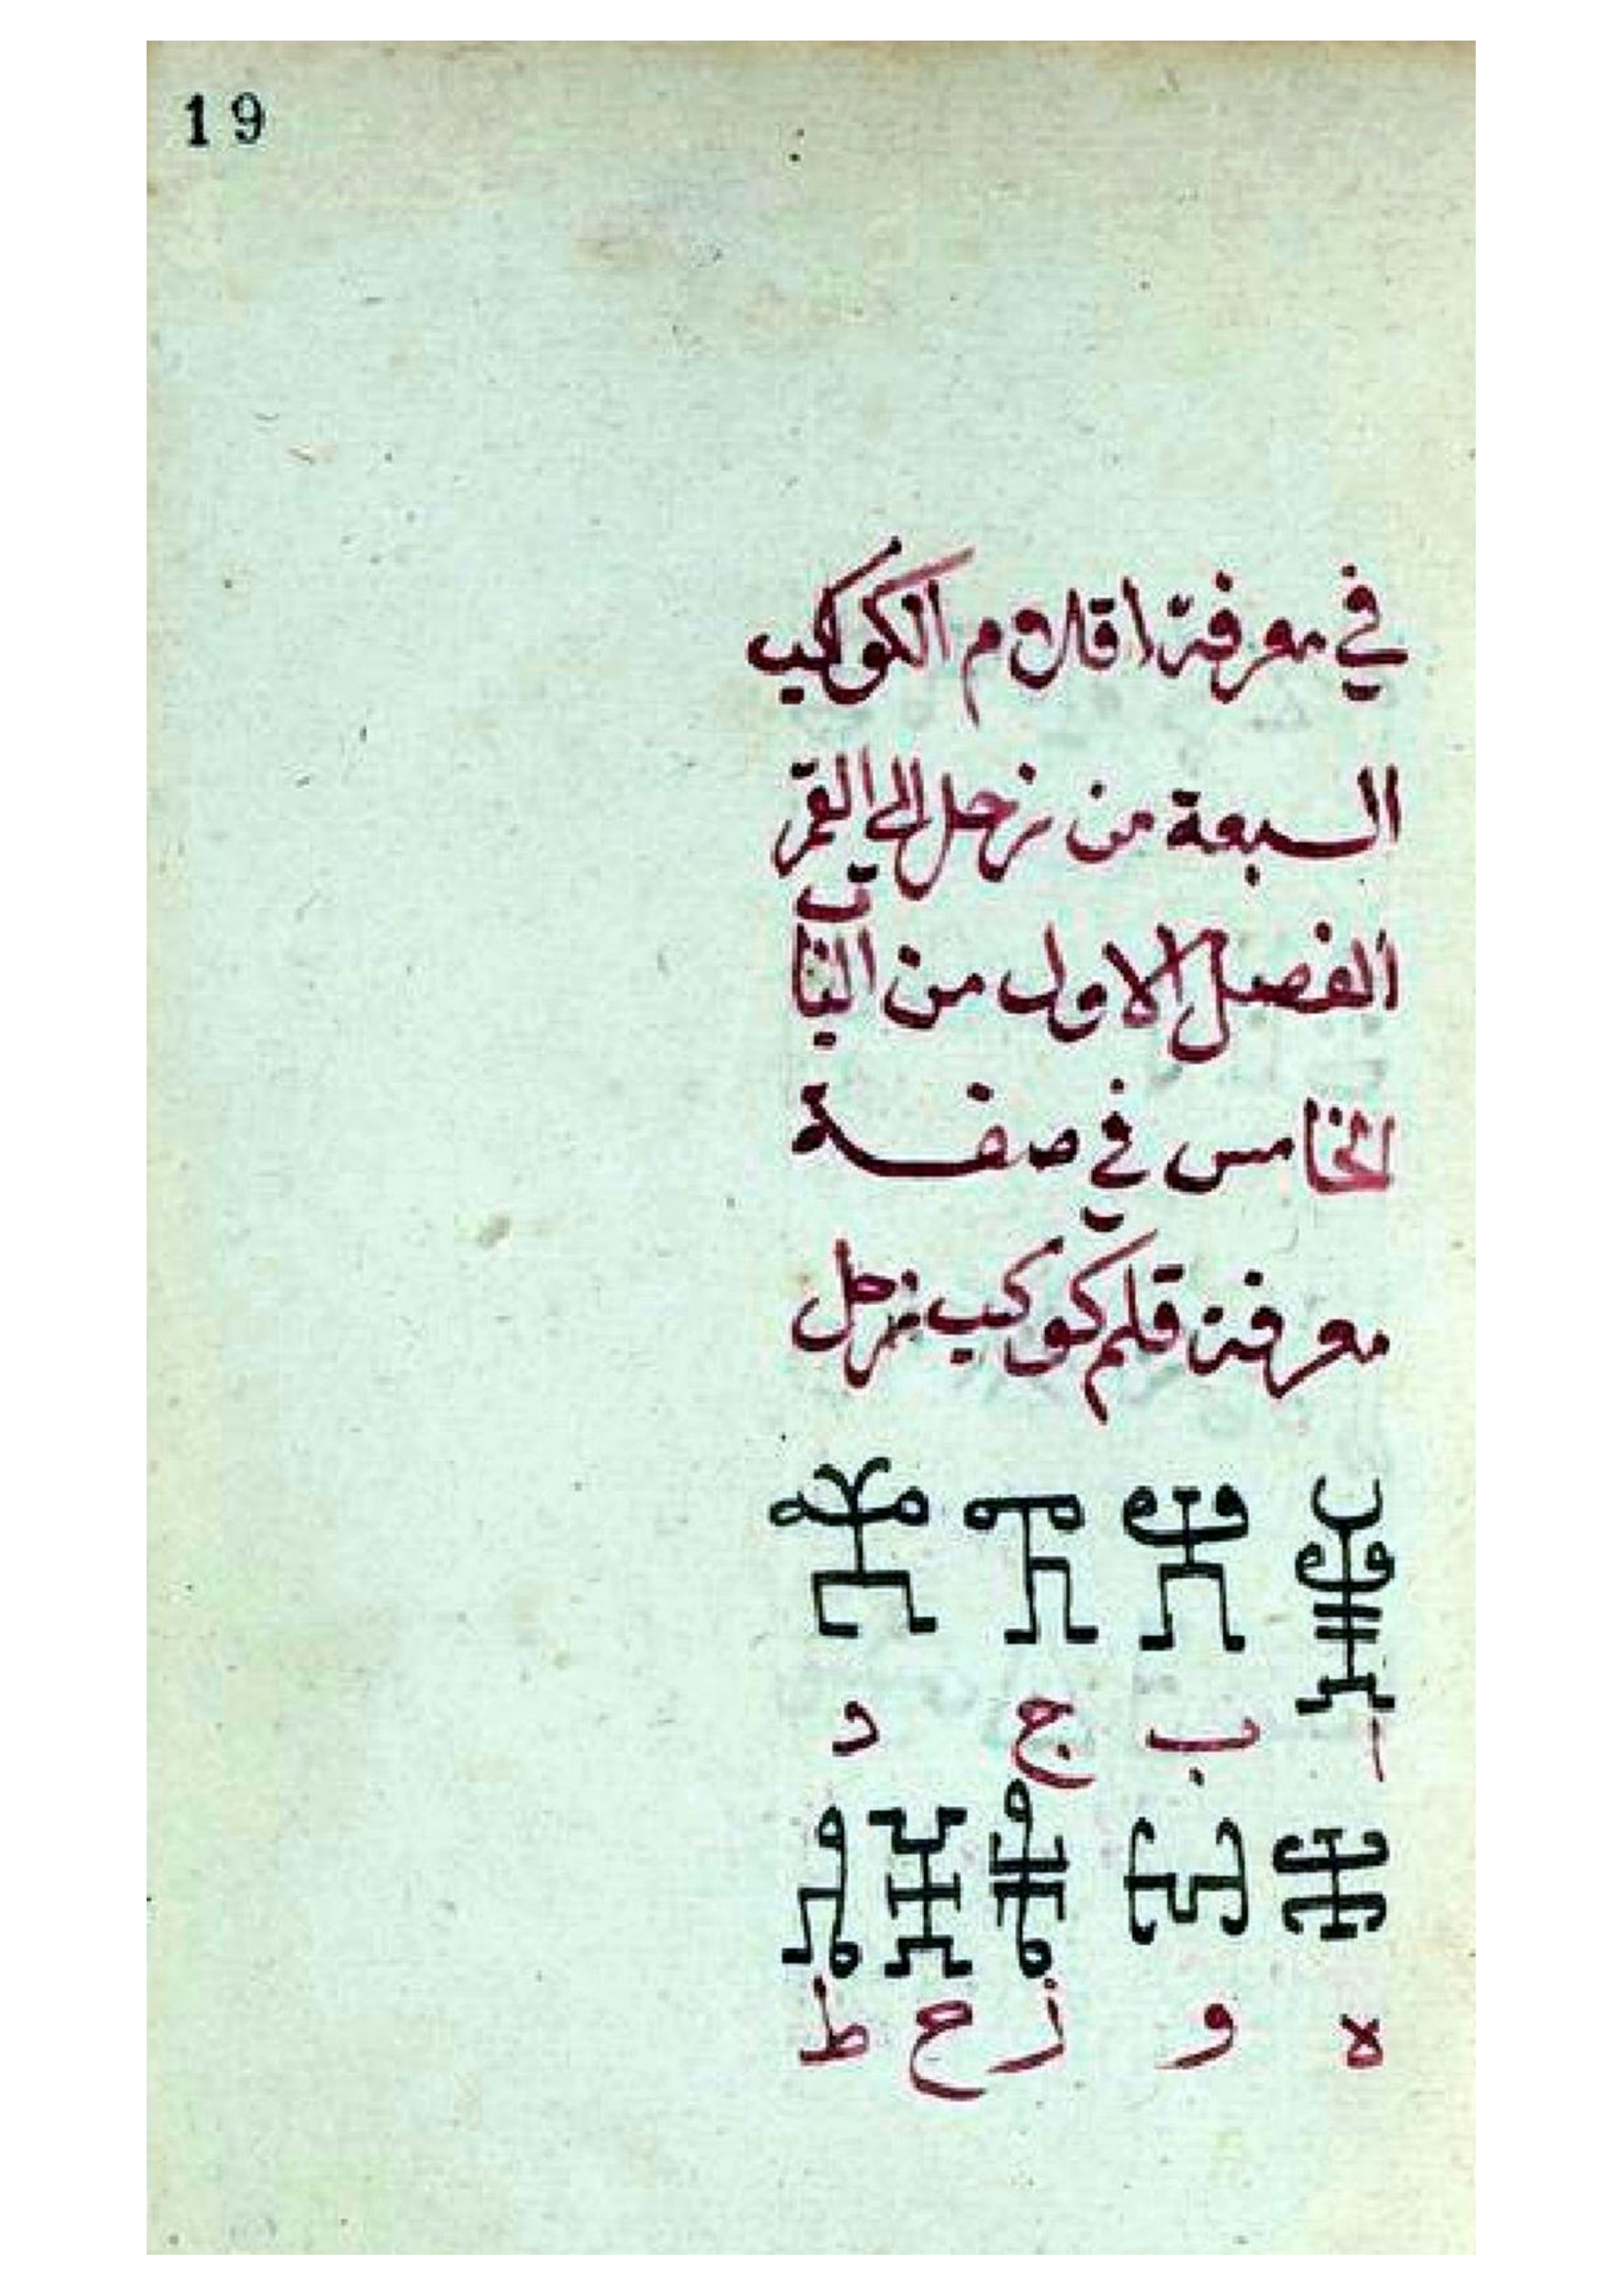 19
في معرفة اقلام الكوكب
السبعة من زحل الى القمر
الفصل الاول من الباب
الخامس في صفة
معرفة قلم كوكب زحل
ا ب ج د
ه و ز ح ط